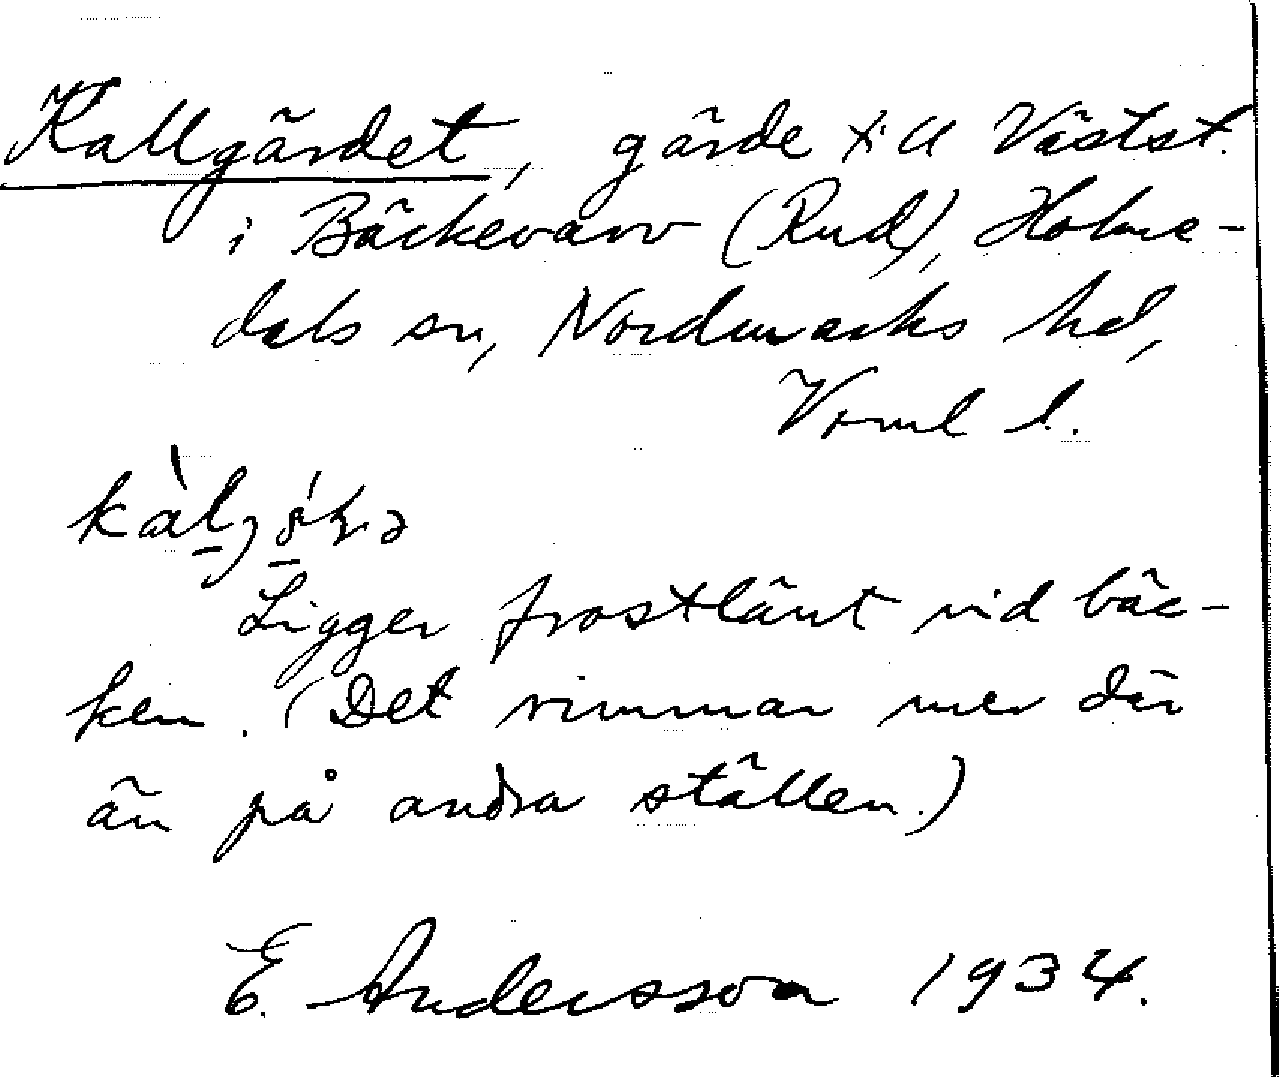 Kallgärdet, gärde till Västst.
i Bäckevarv (Rud), Holme-
dals sn, Nordmarks hd,
Verml l.
Ligger frostlänt vid bäc-
ken. (Det rimmar mer där
än på andra ställen.)
E. Andersson 1934.